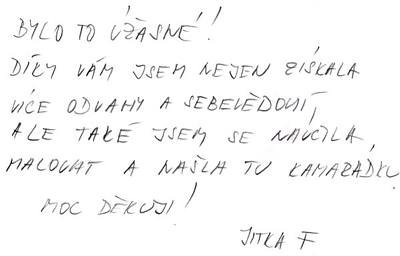 BYLO TO ÚŽASNÉ!
DÍKY VÁM JSEM NEJEN ZÍSKALA
VÍCE ODVAHY A SEBEVĚDOMÍ,
ALE TAKÉ JSEM SE NAUČILA
MALOVAT A NAŠLA TU KAMARÁDKU.
MOC DĚKUJI!
JITKA F